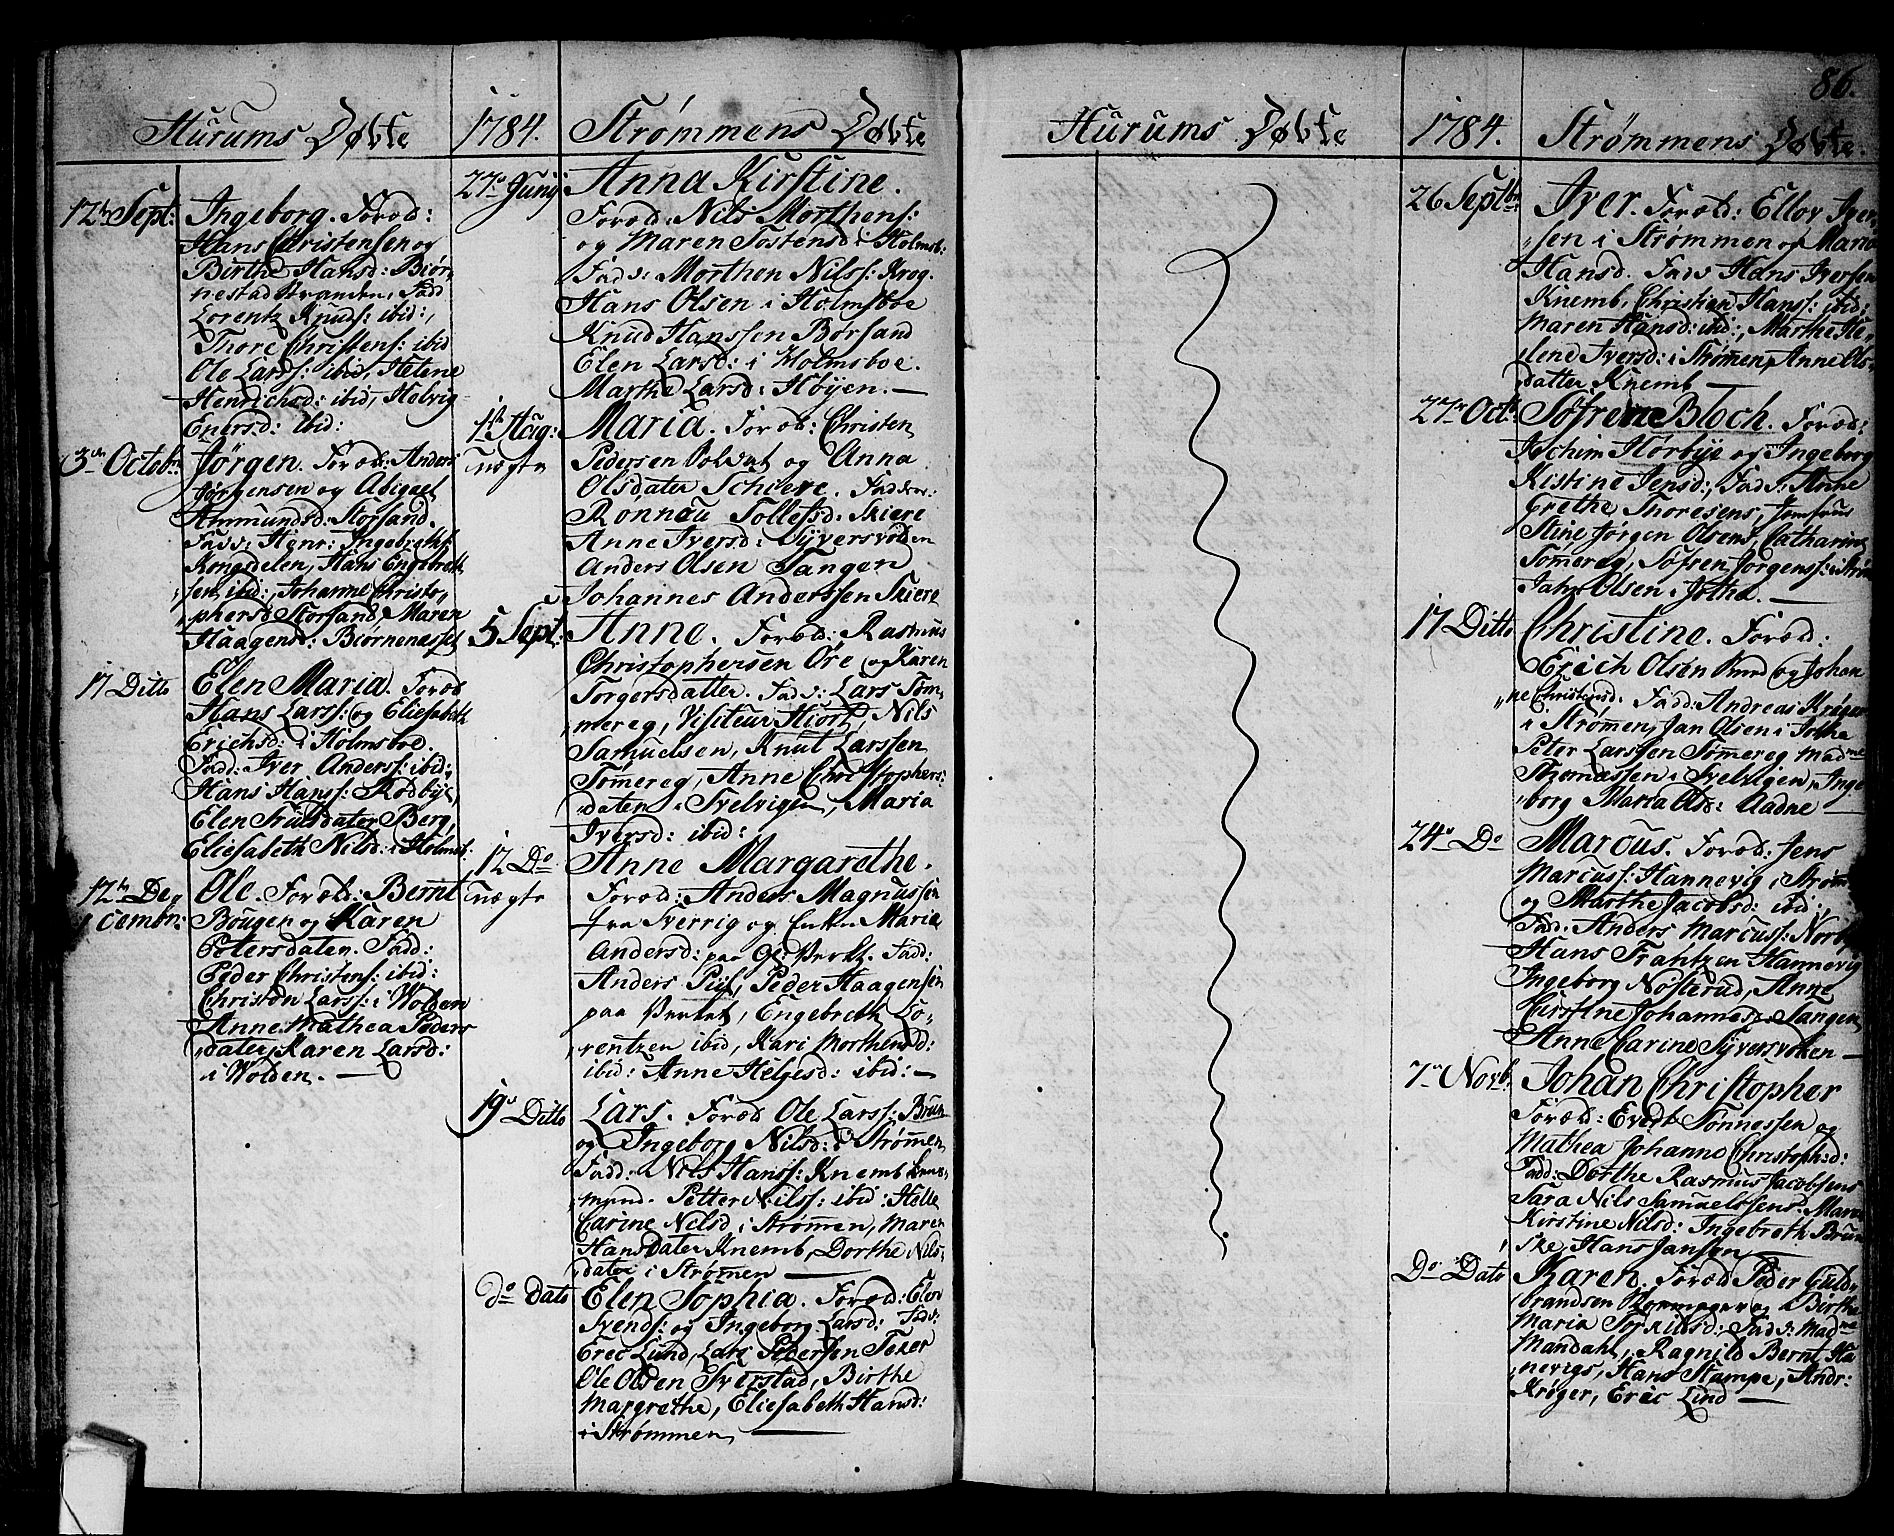 Hurums Døbte
12te Sept: Ingeborg. Foræld:
Hans Christensen og
Birthe Hansd: Biør-
nestad Stranden, Fadd
Lorentz Knuds: ibid:,
Thore Christens: ibid
Ole Larss: ibid, Helene
Henrichsd: ibid, Helvig
Enersd: ibid:
3die Octob: Jørgen. Foræld: Anders
Jørgensen og Abigael
Ammundsd: Storsand.
Fadd: Henr: Ingebreths:
Kongsdelen, Hans Engebret
sen ibid:, Johanne Christo-
phersd: Storsand, Maren
Haagensd: Biørnenesset
17 Ditto Elen Maria. Foræld
Hans Larss: og Eliesabeth
Erichsd: i Holmsboe.
Fadd: Iver Anderss: ibid:,
Hans Hanss: Rødbye,
Elen Trulsdater Berg,
Eliesabeth Nilsd: i Holmsb:
12te De-
cembr: Ole. Foræld: Bernt
Bougen og Karen
Petersdaten. Fadd:
Peder Christens: ibid:
Christen Larss: i Wolden
Anne Mathea Peders
dater, Karen Larsd:
i Wolden. —
1784. Strømmens Døbte
27de Junij Anna Kirstine.
Foræld: Nils Morthens:
og Maren Tostensd: i Holmsb:
Fadd: Morthen Nilss: Krog.
Hans Olsen i Holmsboe
Knud Hanssen Børsand
Elen Larsd: i Holmsboe.
Marthe Larsd: Høyen. —
1ste Aug: Maria. Foræld: Christen
uægte Pedersen og Anna
Olsdater Schiere. Fadder:
Ronnau Tollefsd: Skiere
Anne Iversd: Syversvolden
Anders Olsen Tangen
Johannes Anderssen Skiere
5 Sept: Anne. Foræld: Rasmus
Christophersen Øre og Karen
Torgersdatter. Fadd: Lars Tøm-
mereg, Visiteur Hiort, Nils
Samuelsen, Knut Larssen
Tømereg, Anne Christophers:
daten i Svelvigen, Maria
Iversd: ibid:
12 Do Anne Margarethe.
uægte Foræld: Anders Magnussen
fra Sverrig og Enken Maria
Andersd: paa Gl: Verkt. Fadd:
Anders Piil, Peder Haagensen
paa Verket, Engebreth Lo-
rentzen ibid, Kari Morthensd:
ibid: Anne Helgesd: ibid: —
19de Ditto Lars. Foræld Ole Larss: Brun
og Ingeborg Nilsd: i Strømen
Fadd: Nils Hanss: Knemb
mynd. Petter Nilss: ibid: Helle
Carine Nilsd i Strømen, Maren
Hansdater Knemb, Dorthe Nils-
dater i Strømen —
do Dato Elen Sophia. Foræld: Elev
Svends: og Ingeborg Larsd: Fadd:
Erec Lund, Lars Pedersen Toker
Ole Olsen Sverstad, Birthe
Margrethe, Eliesabeth Hansd:
i Strømmen, —
Hurums Døbte
1784. Strømmens Døbte. 86.
26 Septbr: Iver. Foræld: Ellov Iver-
sen i Strømmen og Maria
Hansd. Fadd: Hans Iversen
Knemb, Christen Hanss: ibid:
Maren Hansd: ibid:, Marthe He-
lene Iversd: i Strømen, Anne Ols-
datter Knemb —
27de Oct: Søfrene Bloch. Foræld:
Jochim Hørbye og Ingeborg
Kistine Jensd:, Fadd: Anne
Grethe Thoresens, Jomfrue
Stine Jørgen Olsens, Catharine
Tømereg, Søfren Jørgenss: i Strøm
Jahn Olsen i Jotha. —
17 Ditto Christine. Foræld:
Erich Olsen og Johan
ne Christensd. Fadd: Andreas Krøger
i Strømen, Jan Olsen i Jotha
Peter Larssen Tømereg, Madme
Thomassen i Svelvigen, Inge
borg Maria Olsd: Aadne —
24de Do Marcus. Foræld: Jens
Marcuss: Hannevig i Strømm
og Marthe Jacobsd: ibid:
Fadd: Anders Marcuss: Nordb
Hans Frantzen Hannevig
Ingeborg Nosterud, Anne
Cirstine Johannesd: Tangen
Anne Carine Syversvolden —
7de Novb: Johan Christopher
Foræld: Evedt Tønnessen og
Mathea Johanne Christophd:
Fadd: Dorthe Rasmus Jacobsens
Sara Nils Samuelssens. Maren
Kirstine Nilsd: Ingebreth Brun
ske, Hans Jansen —
Do Dato Karen. Foræld Peder Guld-
brandsen og Birthe
Maria Torkildsd:, Fadd: Madme
Mandahl, Ragnild Bernt Ha
nevigs, Hans Stampe, Andr:
Krøger, Erec Lind —